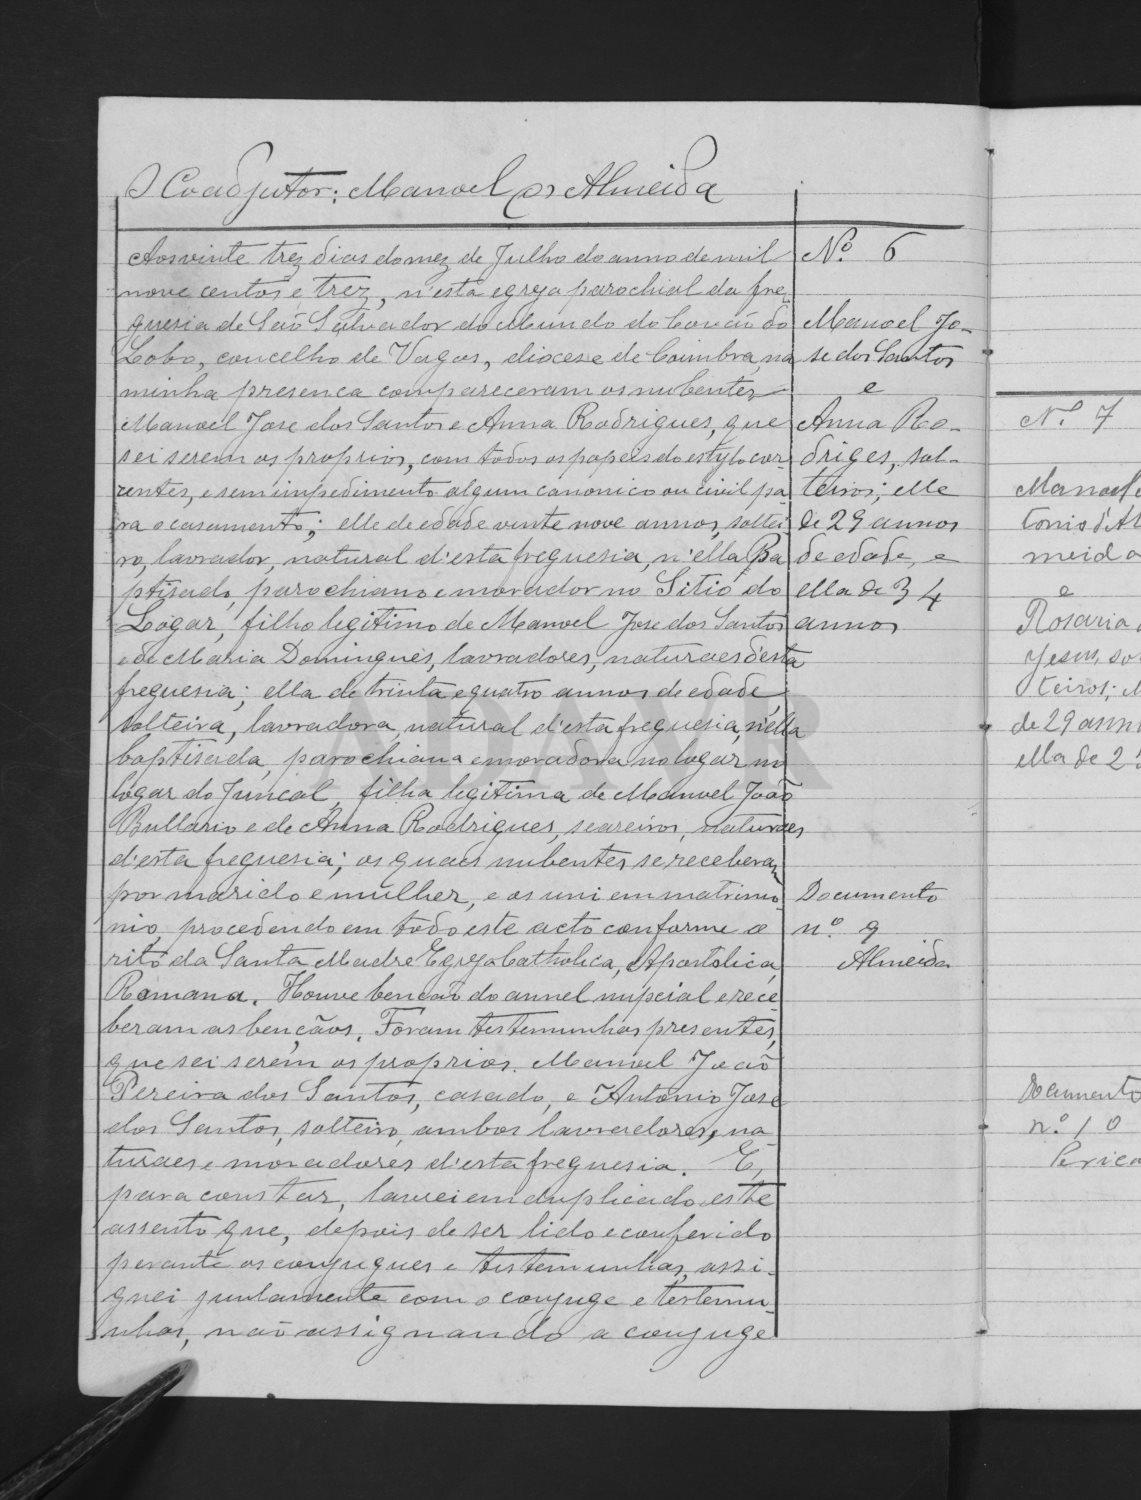 O Coadjutor: Manoel d'Almeida
Aos vinte trez dias do mez de Julho do anno de mil
nove centos e trez, n'esta egreja parochial da fre-
guesia de São Salvador do Mundo do Covão do
Lobo, concelho de Vagos, diocese de Coimbra, na
minha presenca compareceram os nubentes
Manoel Jose dos Santos e Anna Rodrigues, que
sei serem os proprios, com todos os papeis do estylo cor-
rentes, e sem impedimento algum canonico ou civil pa-
ra o casamento; elle de edade vinte nove annos, soltei-
ro, lavrador, natural d'esta freguesia, n'ella Ba
ptisado, parochiano e morador no Sitio do
Logar, filho legitimo de Manoel Jose dos Santos
e de Maria Domingues, lavradores, naturaes d'esta
freguesia; ella de trinta e quatro annos de edade,
solteira, lavradora, natural d'esta freguesia, n'ella
baptisada, parochiana e moradora no logar no
logar do Juncal, filha legitima de Manoel João
Bullario e de Anna Rodrigues, seareiros, naturaes
d'esta freguesia; os quaes nubentes se receberam
por marido e mulher, e os uni em matrimo-
nio, procedendo em todo este acto conforme o
rito da Santa Madre Egreja Catholica, Apostolica,
Romana. Houve bencão do annel nupcial e rece-
beram as bençãos. Foram testemunhas presentes,
que sei serem os proprios. Manoel João
Pereira dos Santos, casado, e Antonio Jose
dos Santos, solteiro, ambos lavradores, na-
turaes e moradores d'esta freguesia. E,
para constar, lavrei em duplicado este
assento que, depois de ser lido e conferido
perante os conjuges e testemunhas, assi-
gnei juntamente com o conjuge e testemu-
nhas, não assignando a conjuge
Nº 6
Manoel Jo-
se dos Santos
e
Anna Ro-
driges, sol-
teiros; elle
de 29 annos
de edade, e
ella de 34
annos
Documento
n.º 9
Almeida
N.º 7
Manoel
tonio d'Al
meida
e
Rosaria
Jesus, sol
teiros;
de 29 ann
ella de 2
Documento
n.º 10
ADAVR